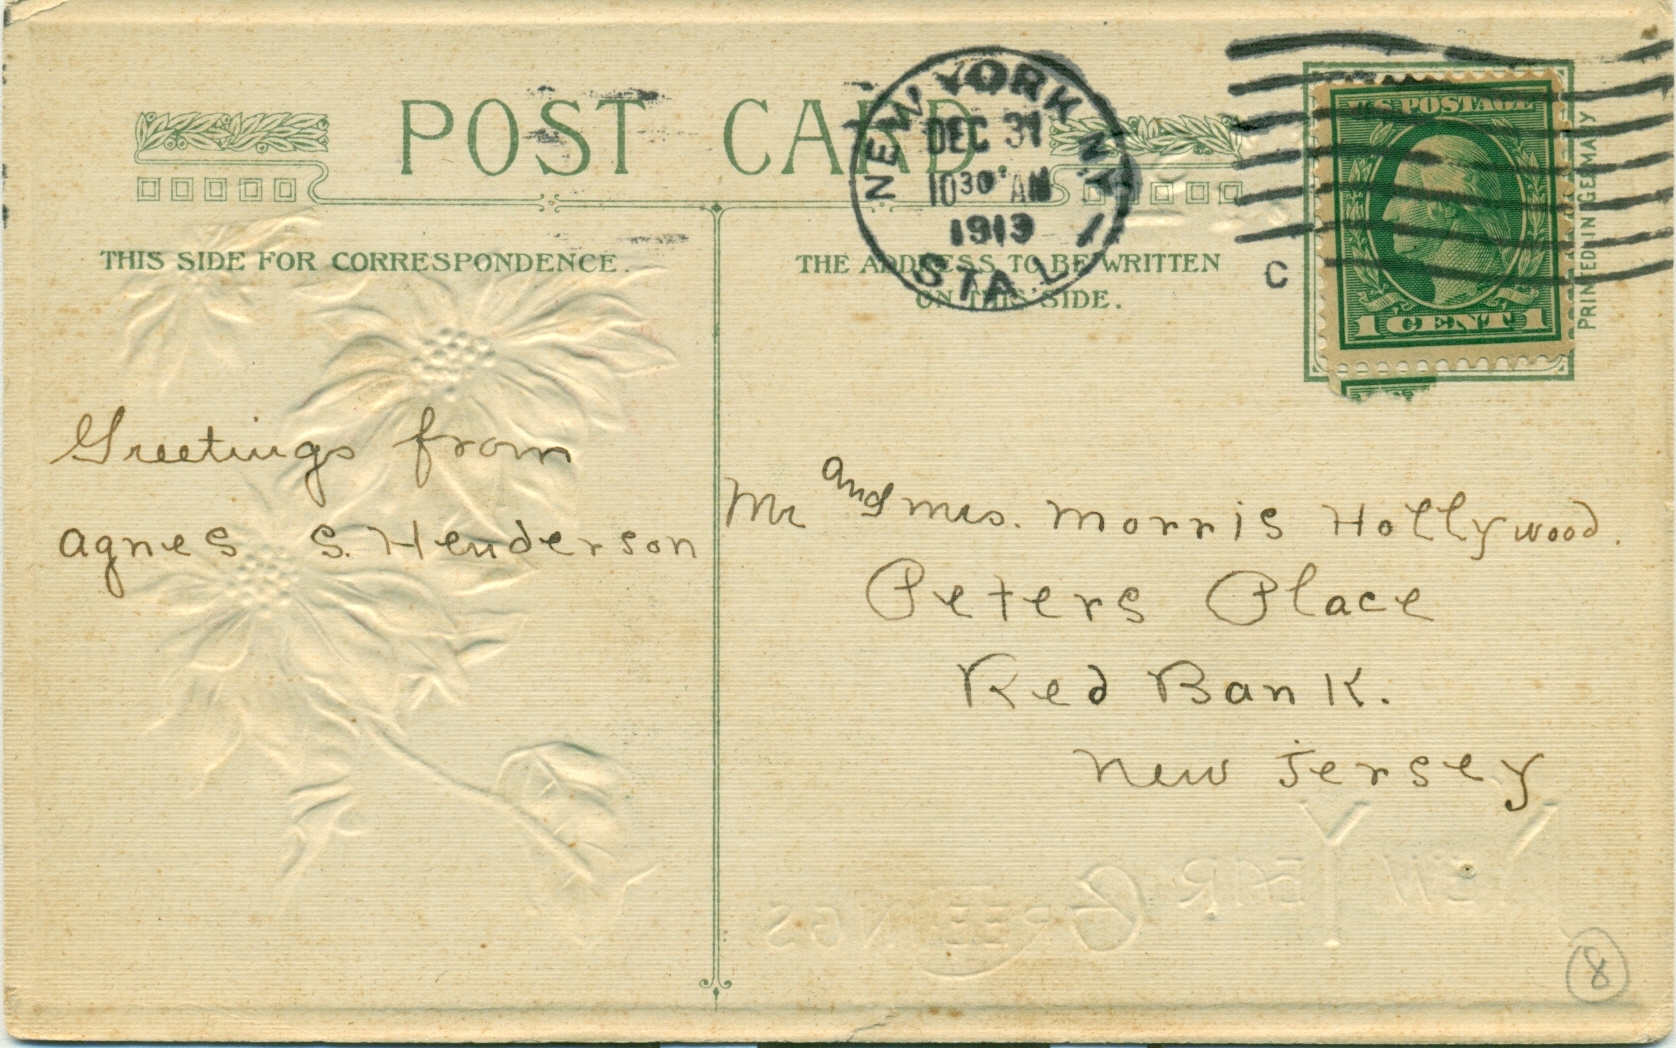 POST CARD
NEW YORK, N.Y.
DEC 31
10 30 AM
1913
STA. L
C
U.S. POSTAGE
1 CENT 1
PRINTED IN GERMANY
THIS SIDE FOR CORRESPONDENCE.
THE ADDRESS TO BE WRITTEN
ON THIS SIDE.
Greetings from
Agnes S. Henderson
Mr and Mrs. Morris Hollywood.
Peters Place
Red Bank.
New Jersey
NEW YEAR GREETINGS
8